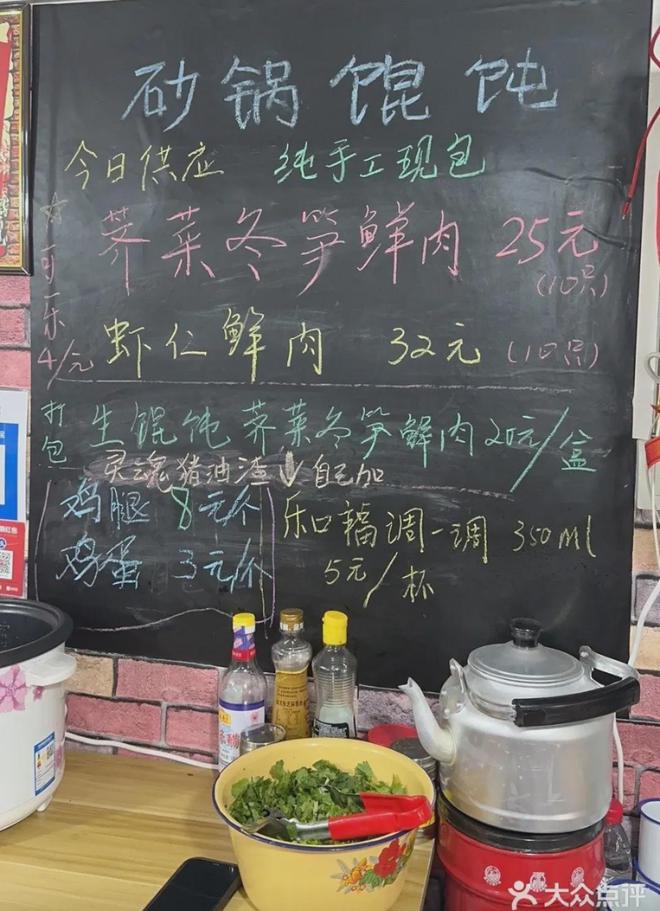 砂锅馄饨
今日供应 纯手工现包
荠菜冬笋鲜肉 25元
(10只)
☆可乐4/元
虾仁鲜肉 32元 (10只)
打包
生馄饨荠菜冬笋鲜肉20元/盒
灵魂猪油渣↓自己加
鸡腿 8元/个
鸡蛋 3元/个
乐口福调一调 350ml
5元/杯
大众点评